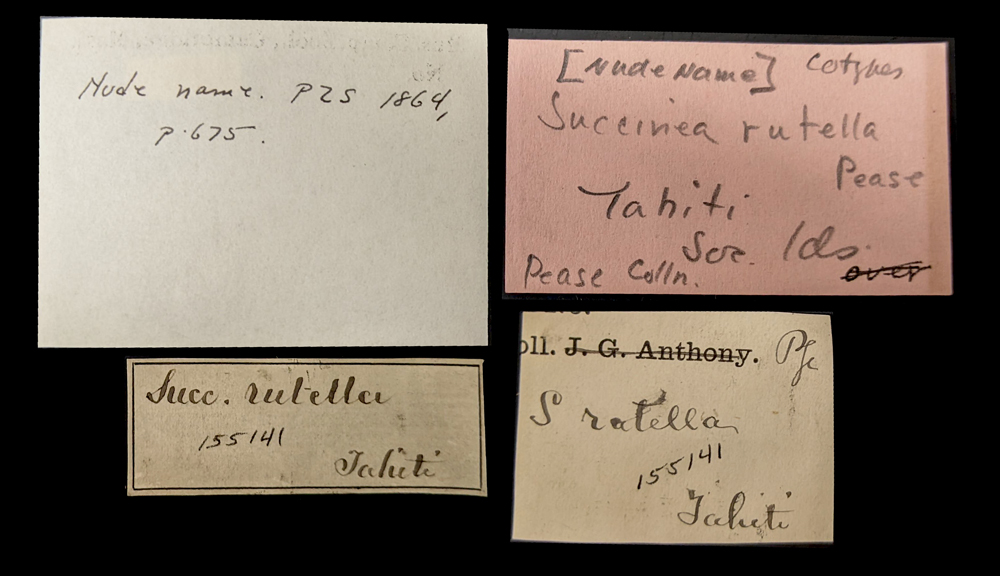 Nude name. PZS 1864,
p.675.
[Nude Name] Cotypes
Succinea rutella
Pease
Tahiti
Soc. Ids.
Pease Colln.
over
Succ. rutella
155141
Tahiti
oll. J. G. Anthony.
S rutella
155141
Tahiti